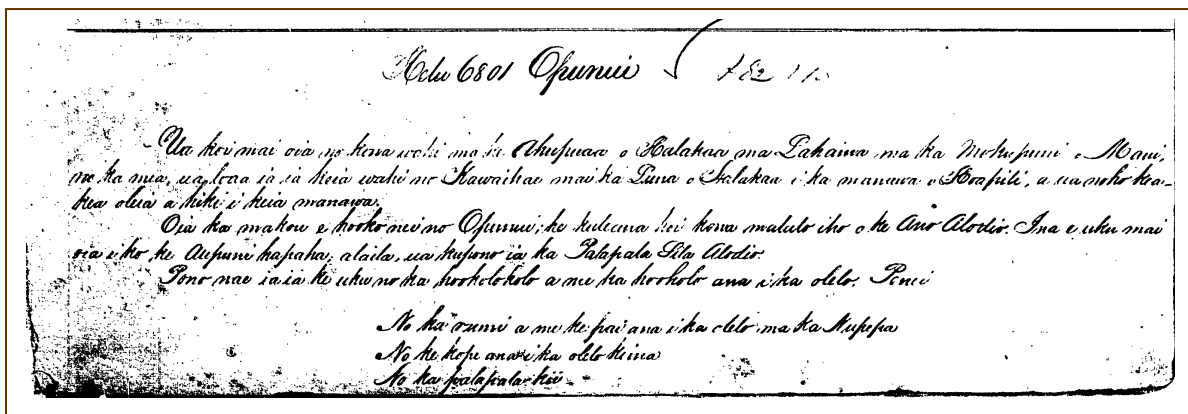 Helu 6801 Opunui
Ua koi mai oia no kona wahi ma ke Ahupuaa o Halakaa ma Lahaina ma ka Mokupuni o Maui,
no ka mea, ua loaa ia ia keia wahi no Kawaihae mai ka Puna o Halakaa i ka manawa o Hoapili, a ua noho kea-
kea oleia a hiki i keia manawa.
Oia ka makou e hooko nei no Opunui; he kuleana koi kona malalo iho o ke Ano Alodio. Ina e uku mai
oia i ko ke Aupuni hapaha, alaila, ua kupono ia ka Palapala Sila Alodio.
Pono nae ia ia ke uku no ka hookolokolo a me ka hooholo ana i ka olelo. Penei
No ka rumi a me ke pai ana i ka olelo ma ka Nupepa
No ke kope ana i ka olelo keina
No ka palapala kii